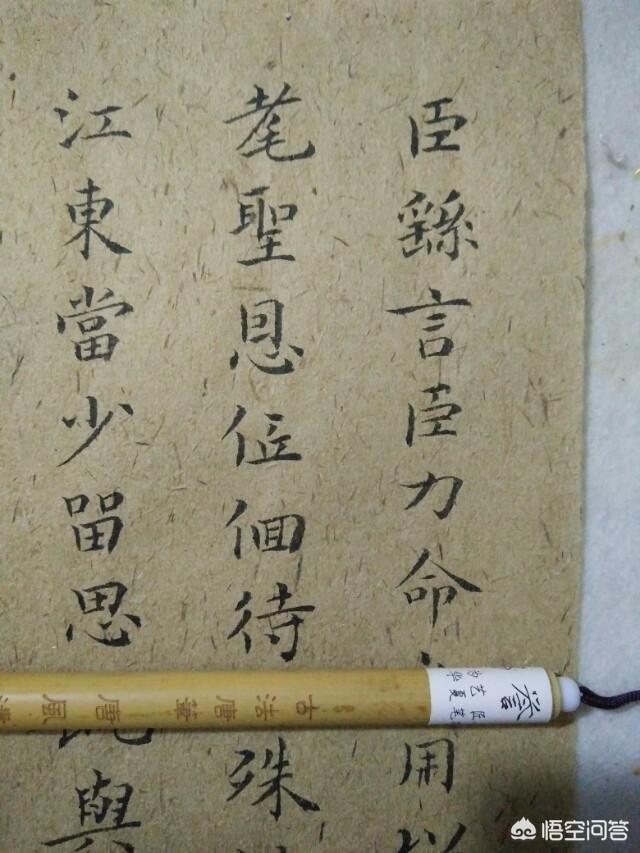 臣繇言臣力命用以
耄聖恩低佪待殊
江東當少留思與
古法唐筆唐風
悟空问答